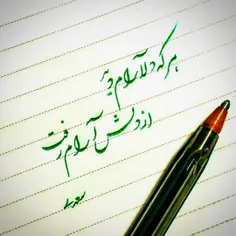 هر که دلارام دید
از دلش آرام رفت
سعدی